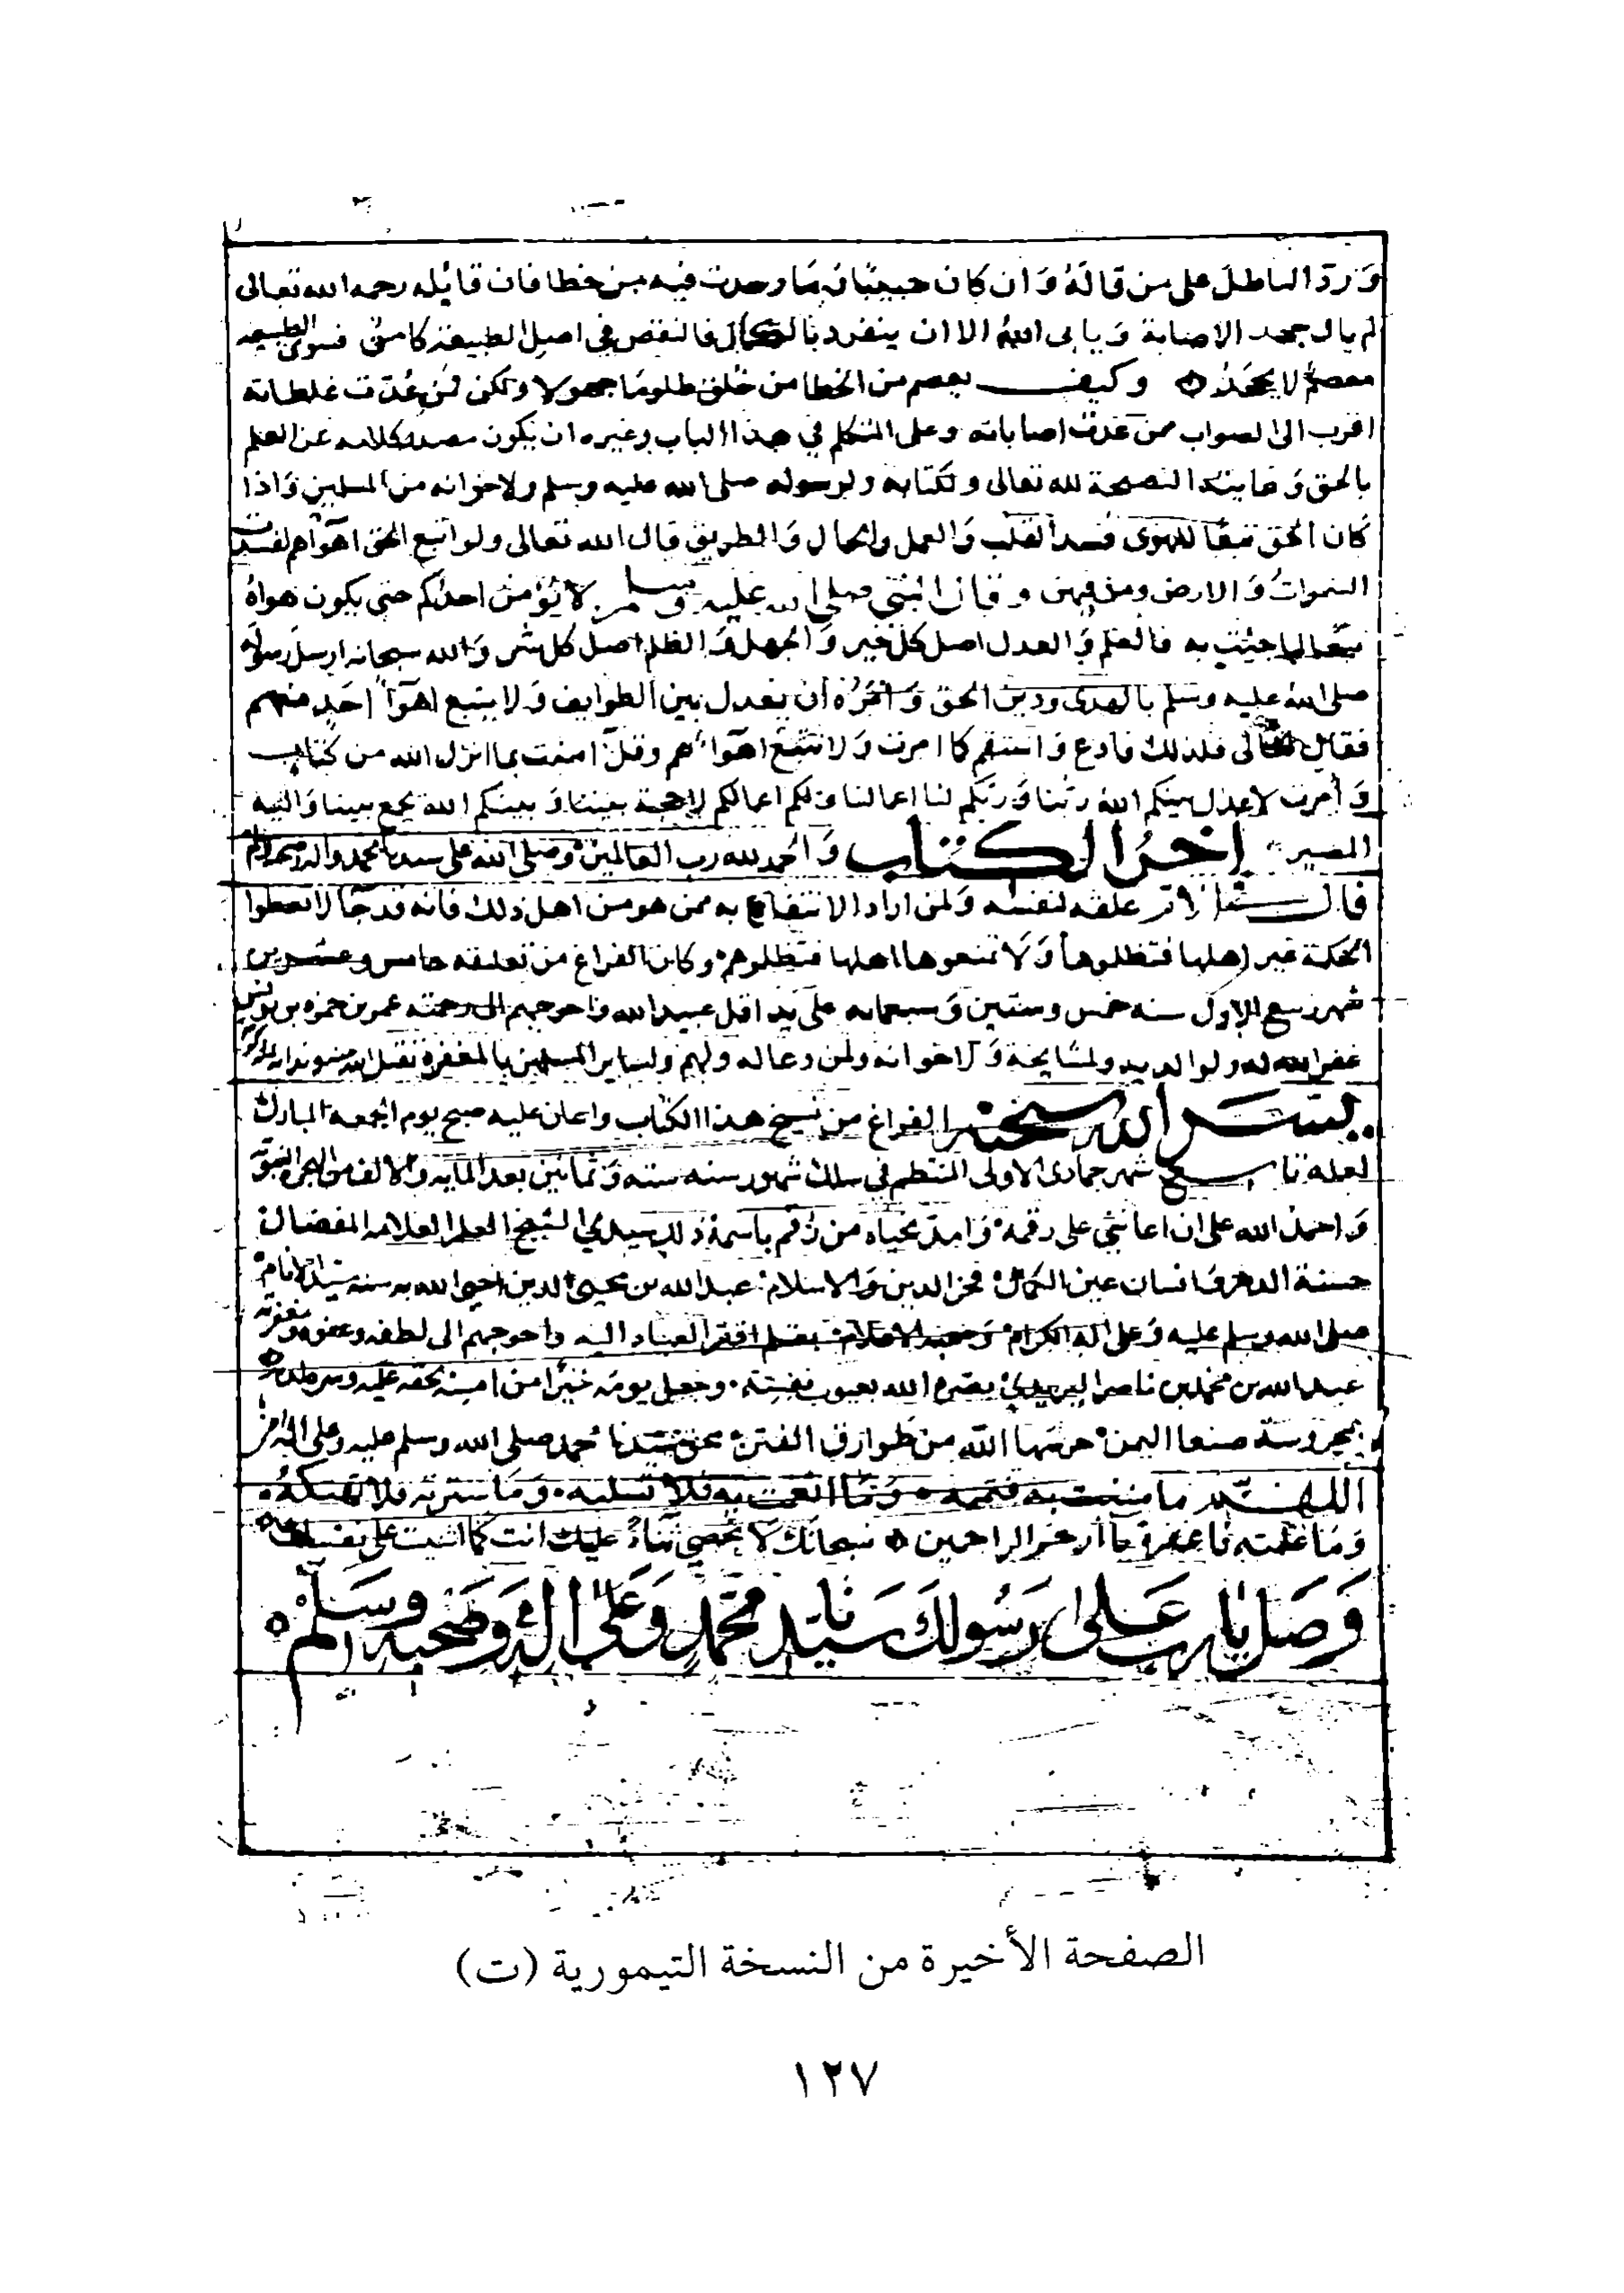 وَردّ الباطلَ على من قالَهُ وَان كان حبيبًا وَمَا وجدت فيه من خطا فان قايله رحمه الله تعالى
لم يال جهد الاصابة وَيابى اللهُ الا ان ينفرد بالكمال فالنقص في اصل الطبيعة كامن فسوى الطبيعه
لا يجحدُ وكيف يعصم من الخطا من خُلق ظلومًا جهولا ولكن من عُدّت غلطاته
اقرب الى الصواب ممن عُدت اصاباته وعلى المتكلم في هذا الباب وغيره ان يكون مصدر كلامه عن العلم
بالحق وَغايته النصيحة لله تعالى ولكتابه ولرسوله صلى الله عليه وسلم ولاخوانه من المسلمين وَاذا
كَان الحق تبعًا للهوى فسد القلب وَالعمل والحال وَالطريق قال الله تعالى ولو اتبع الحق اهوآهم لفسدت
السموات وَالارض ومن فيهن وقال النبي صلى الله عليه وسلم لا يؤمن احدكم حتى يكون هواهُ
تبعًا لما جئت به فالعلم وَالعدل اصل كل خير وَالجهل وَالظلم اصل كل شر وَالله سبحانه ارسل رسوله
صلى الله عليه وسلم بالهدى ودين الحق وَامَرَهُ ان يعدل بين الطوايف وَلا يتبع اهوآ احَدٍ منهم
فقال تعالى فلذلك فادع وَاستقم كما امرت وَلا تتبع اهوآهم وقل امنت بما انزل الله من كتاب
وَأمرت لاعدل بينكم الله ربّنا وَربّكم لنا اعمالنا ولكم اعمالكم لا حجة بيننا وَبينكم الله يجمع بيننا وَاليه
المصير اخرُ الكتاب وَالحمد لله رب العالمين وصلى الله على سيدنا محمد واله وصحبه وسلم
قال علقه لنفسه وَلمن اراد الانتفاع به ممن هو من اهل ذلك فانه قد جآ لا تعطوا
الحكمة غير اهلها فتظلوها وَلا تمنعوها اهلها فتظلوهم وكان الفراغ من تعليقه خامس وعشرين
شهر ربيع الاول سنه خمس وستين وَسبعمايه على يد اقل عبيد الله واحوجهم الى رحمته عمر بن حمزه بن يونس
غفر الله له ولوالديه ولمشايخة وَلاخوانه ولمن دعا له ولهم ولساير المسلمين بالمغفرة
يسّر الله سبحانه الفراغ من نسخ هذا الكتاب واعان عليه صبح يوم الجمعة المبارك
لعله تاسع شهر جمادى الاولى المنتظم في سلك شهور سنه سته وَثمانين بعد المايه والالف من الهجرة النبوية
وَاحمدُ الله على ان اعانني على رقمه وَامدّ بحياه من رُقم باسمه ذلك سيدي الشيخ العلم العلامه المفضال
حسنة الدهر انسان عين الكمال فخر الدين وَالاسلام عبد الله بن محيي الدين احيى الله به سنة سيّد الانام
صلى الله وسلم عليه وَعلى اله الكرام وَصحبه الاعلام بقلم افقر العباد اليه واحوجهم الى لطفه وعفوه ومغفرته
عبد الله بن محمد بن ناصر بصّره الله بعيوب نفسِه وجعل يومَه خيرًا من امسِه بحقه عليه
بمحروسة صنعا اليمن حرسَها الله من طوارق الفتن بحق سيّدنا محمد صلى الله وسلم عليه وعلى اله
اللهــم ما مننت به فتممه وَمَا انعمت به فلا تسلبه وَمَا سترته فلا تهتكهُ
وَمَا علمته فاغفره يآ أرحم الراحمين سبحانك لا نحصي ثنآءً عليك انت كما اثنيت على نفسك
وَصَلِّ يَا رب عَلى رَسُولكَ سَيّدنَا مُحَمّدٍ وَعَلى الهِ وَصَحبهِ وَسَلّم
الصفحة الأخيرة من النسخة التيمورية (ت)
١٢٧